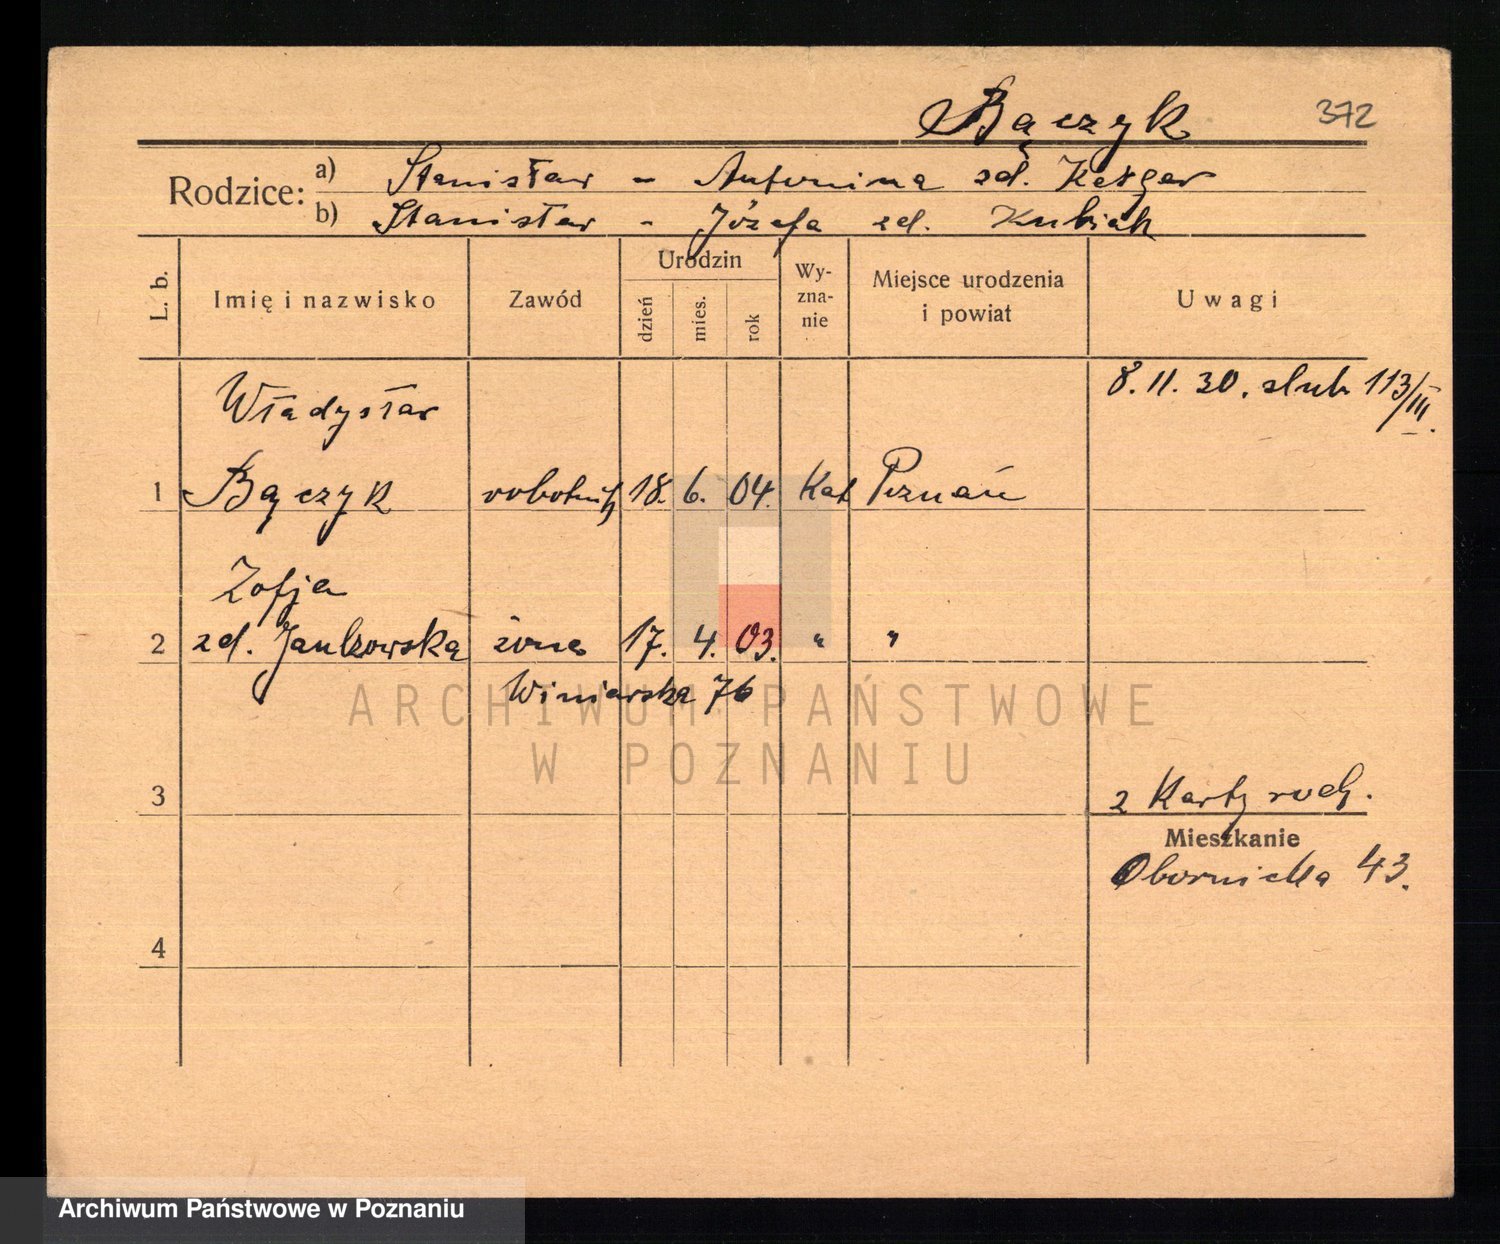 Bączyk 372
Rodzice: a) Stanisław - Antonina zd.
b) Stanisław - Józefa zd. Kubiak
L. b. Imię i nazwisko Zawód Urodzin dzień mies. rok Wy-zna-nie Miejsce urodzenia i powiat Uwagi
Władysław
8. 11. 30. slub 113/III.
1 Bączyk robotnik 18. 6. 04. Kat Poznań
Zofja
2 zd. Jankowska żona 17. 4. 03. " "
Winiarska 76
ARCHIWUM PAŃSTWOWE
W POZNANIU
3
2 Karty ruch.
Mieszkanie
Obornicka 43.
4
Archiwum Państwowe w Poznaniu